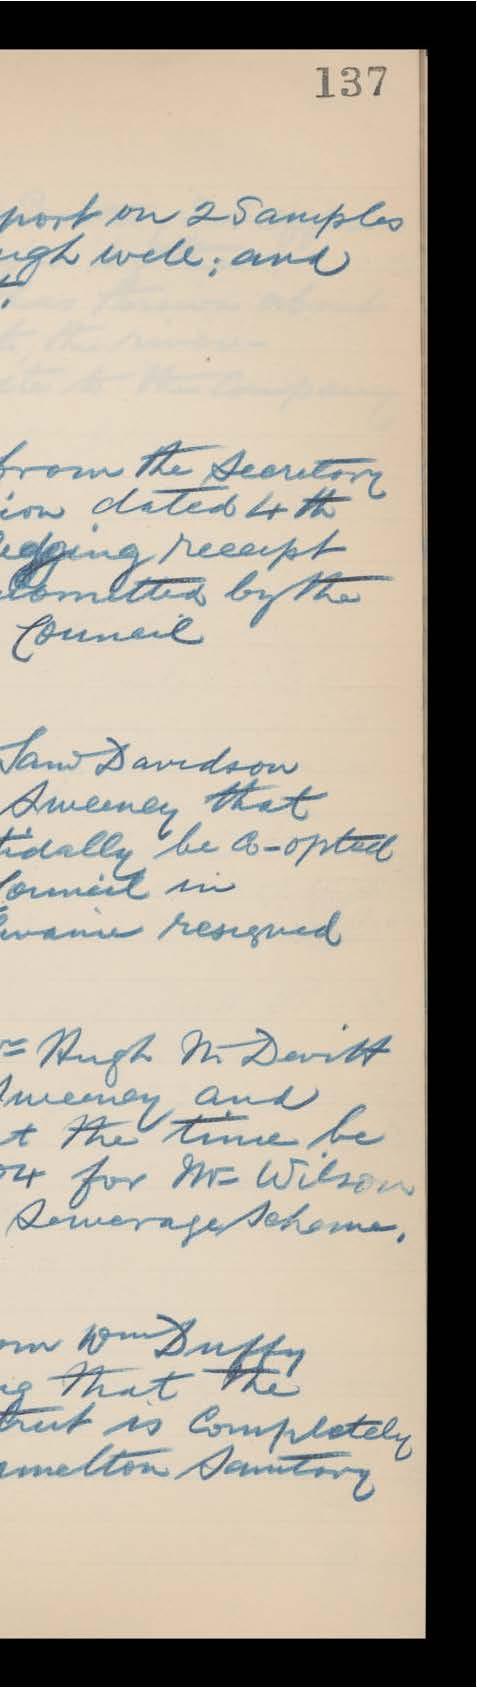 137
port on 2 Samples
ugh well; and
t.
from the Secretary
ion dated 4th
ledging receipt
ubmitted by the
Council
Saml Davidson
Sweeney that
tidally be Co-opted
Council in
lwaine resigned
r= Hugh McDevitt
Sweeney and
t the time be
04 for Mr= Wilson
Sewerage Scheme.
om Wm Duffy
ng that the
trict is Completely
amelton Sanitary